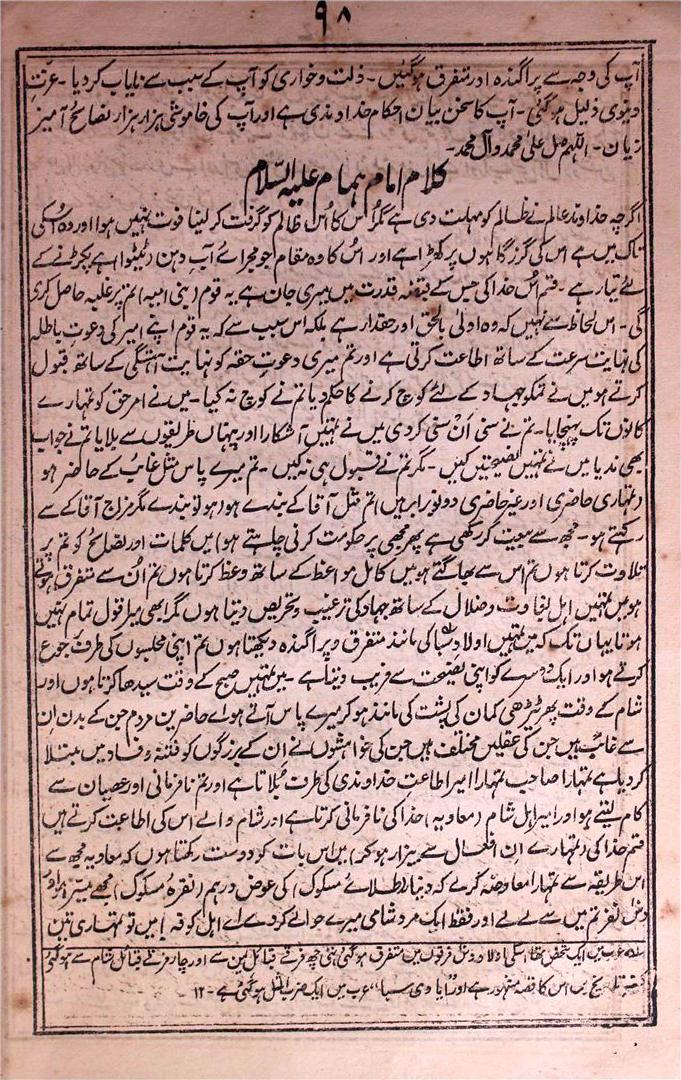 ۹۸
آپ کی وجہ سے پراگندہ اور متفرق ہوگئیں۔ ذلت وخواری کو آپ کے سبب سے نایاب کر دیا۔ عزّتِ
دنیوی ذلیل ہوگئی۔ آپ کا سخن بیان احکام خداوندی ہے اور آپ کی خاموشی ہزار ہزار نصائح آمیز
زبان۔ اللہم صل علیٰ محمد وآل محمد۔
کلام امام ہمام علیہ السّلام
اگرچہ خداوند عالم نے ظالم کو مہلت دی ہے مگر اُس کا اُس ظالم کو گرفت کر لینا فوت نہیں ہوا اور وہ اُسکی
تاک میں ہے اس کی گزرگاہوں پر کھڑا ہے اور اُس کا وہ مقام جو مجرائے آبِ دہن (ٹیٹوا) ہے پکڑنے کے
لئے تیار ہے۔ قسم اُس خدا کی جس کے قبضہ قدرت میں میری جان ہے یہ قوم (بنی امیہ) تم پر غلبہ حاصل کریگی
گی۔ اس لحاظ سے نہیں کہ وہ اولیٰ بالحق اور حقدار ہے بلکہ اس سبب سے کہ یہ قوم اپنے امیر کی دعوتِ باطلہ
کی نہایت سرعت کے ساتھ اطاعت کرتی ہے اور تم میری دعوتِ حقہ کو نہایت آہستگی کے ساتھ قبول
کرتے ہو میں نے تمکو جہاد کے لئے کوچ کرنے کا حکم دیا تم نے کوچ نہ کیا۔ میں نے امر حق کو تمہارے
کانوں تک پہنچایا۔ تم نے سنی اَن سنی کر دی میں نے تمہیں آشکارا اور پنہاں طریقوں سے بلایا تم نے جواب
بھی نہ دیا میں نے تمہیں نصیحتیں کیں۔ مگر تم نے قبول ہی نہ کیں۔ تم میرے پاس مثل غائب کے حاضر ہو
(تمہاری حاضری اور غیر حاضری دونو برابر ہیں) تم مثل آقا کے بندے ہو (ہو تو بندے مگر مزاج آقا کے سے
رکھتے ہو۔ مجھ سے بیعت کر رکھی ہے پھر مجھی پر حکومت کرنی چاہتے ہو) میں کلمات اور نصائح کو تم پر
تلاوت کرتا ہوں تم اس سے بھاگتے ہو میں کامل مواعظ کے ساتھ وعظ کرتا ہوں تم اُن سے متفرق ہوتے
ہو میں تمہیں اہل بغاوت وضلال کے ساتھ جہاد کی ترغیب وتحریص دیتا ہوں مگر ابھی میرا قول تمام نہیں
ہوتا یہاں تک کہ میں تمہیں اولاد سبا کی مانند متفرق وپراگندہ دیکھتا ہوں تم اپنی مجلسوں کی طرف رجوع
کرتے ہو اور ایک دوسرے کو اپنی نصیحت سے فریب دیتا ہے۔ میں تمہیں صبح کے وقت سیدھا کرتا ہوں اور
شام کے وقت پھر ٹیڑھی کمان کی پشت کی مانند ہو کر میرے پاس آتے ہو اے حاضرین مردم جن کے بدن اِن
سے غائب ہیں جن کی عقلیں مختلف ہیں جن کی خواہشوں نے اِن کے بزرگوں کو فتنہ وفساد میں مبتلا
کر دیا ہے تمہارا صاحب تمہارا امیر اطاعت خداوندی کی طرف بُلاتا ہے اور تم نافرمانی اور عصیان سے
کام لیتے ہو اور امیر اہل شام (معاویہ) خدا کی نافرمانی کرتا ہے اور شام والے اس کی اطاعت کرتے ہیں
قسم خدا کی (تمہارے اِن افعال سے بیزار ہو کر) میں اس بات کو دوست رکھتا ہوں کہ معاویہ مجھ سے
اس طریقہ سے تمہارا معاوضہ کرے کہ دینار (طلائے مسکوک) کی عوض درہم (نقرہ مسکوک) مجھے میسر ہو اور
دس نفر تم میں سے لے لے اور فقط ایک مرد شامی میرے حوالے کر دے اے اہل کوفہ! میں تو تمہاری تین
سبا عرب میں ایک شخص تھا اسکی اولاد دس فرقوں میں متفرق ہوگئی تھی چھ فرقے قبائل یمن سے اور چار فرقے قبائل شام سے ہوگئے
تاریخ میں اس کا قصہ مشہور ہے اور "ایادی سبا" عرب میں ایک ضرب المثل ہوگئی ہے۔ ۱۲